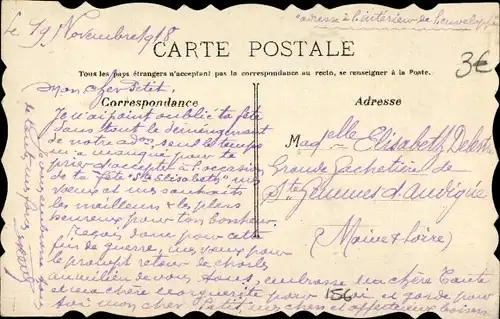 le 19 Novembre 1918
(adresse à l'intérieur de l'enveloppe
CARTE POSTALE
3€
Tous les pays étrangers n'acceptent pas la correspondance au recto, se renseigner à la Poste.
Correspondance
Adresse
Mon cher Petit,
Je n'ai point oublié ta fête
dans tout le déménagement
de notre seul le temps
m'a manqué pour te
prier d'accepter à l'occasion
de ta fête "Ste Elisabeth" mes
vœux et mes souhaits
les meilleurs & les plus
heureux pour ton bonheur.
Reçois donc pour cette
fin de guerre, mes vœux pour
le prompt retour de
au milieu de vous tous, embrasse ma chère Tante
et ma chère Marguerite pour et garde pour
toi mon cher Petit, mes chers et affectueux baisers
Mademoiselle Elisabeth
Grande
Ste Gemmes d'Andigné
(Maine & Loire)
156